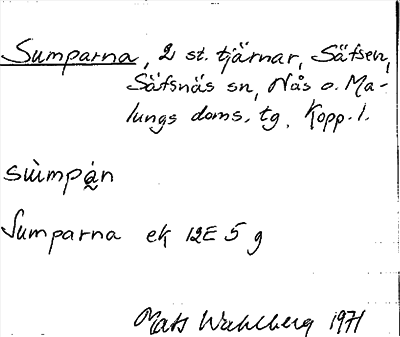 Sumparna, 2 st. tjärnar, Säfsen,
Säfsnäs sn, Nås o. Ma-
lungs doms. tg. Kopp. l.
sùmpȧ̰n
Sumparna ek 12E 5 g
Mats Wahlberg 1971